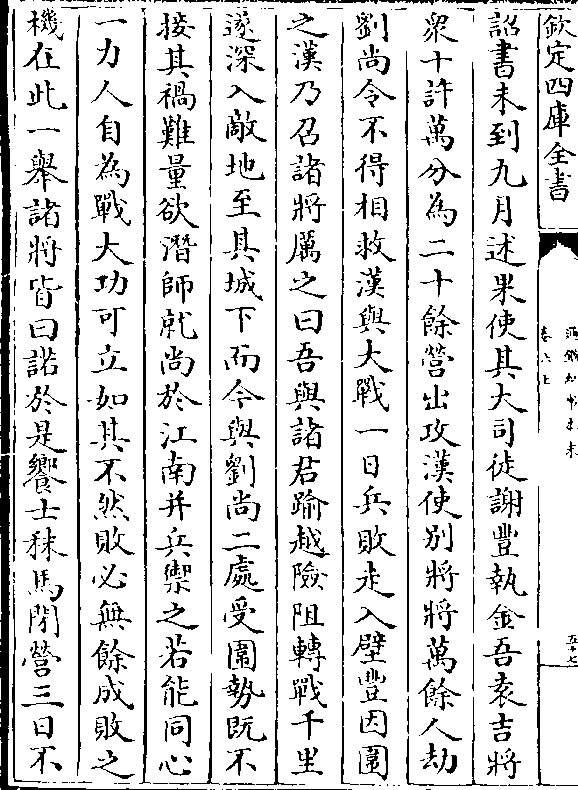 欽定四庫全書
通鑑紀事本末
卷六上
五十七
詔書未到九月述果使其大司徒謝豐執金吾袁吉將
衆十許萬分為二十餘營出攻漢使别將將萬餘人劫
劉尚令不得相救漢與大戰一日兵敗走入壁豐因圍
之漢乃召諸將厲之曰吾與諸君踰越險阻轉戰千里
遂深入敵地至其城下而今與劉尚二處受圍勢既不
接其禍難量欲潛師就尚於江南并兵禦之若能同心
一力人自為戰大功可立如其不然敗必無餘成敗之
機在此一舉諸將皆曰諾於是饗士秣馬閉營三日不